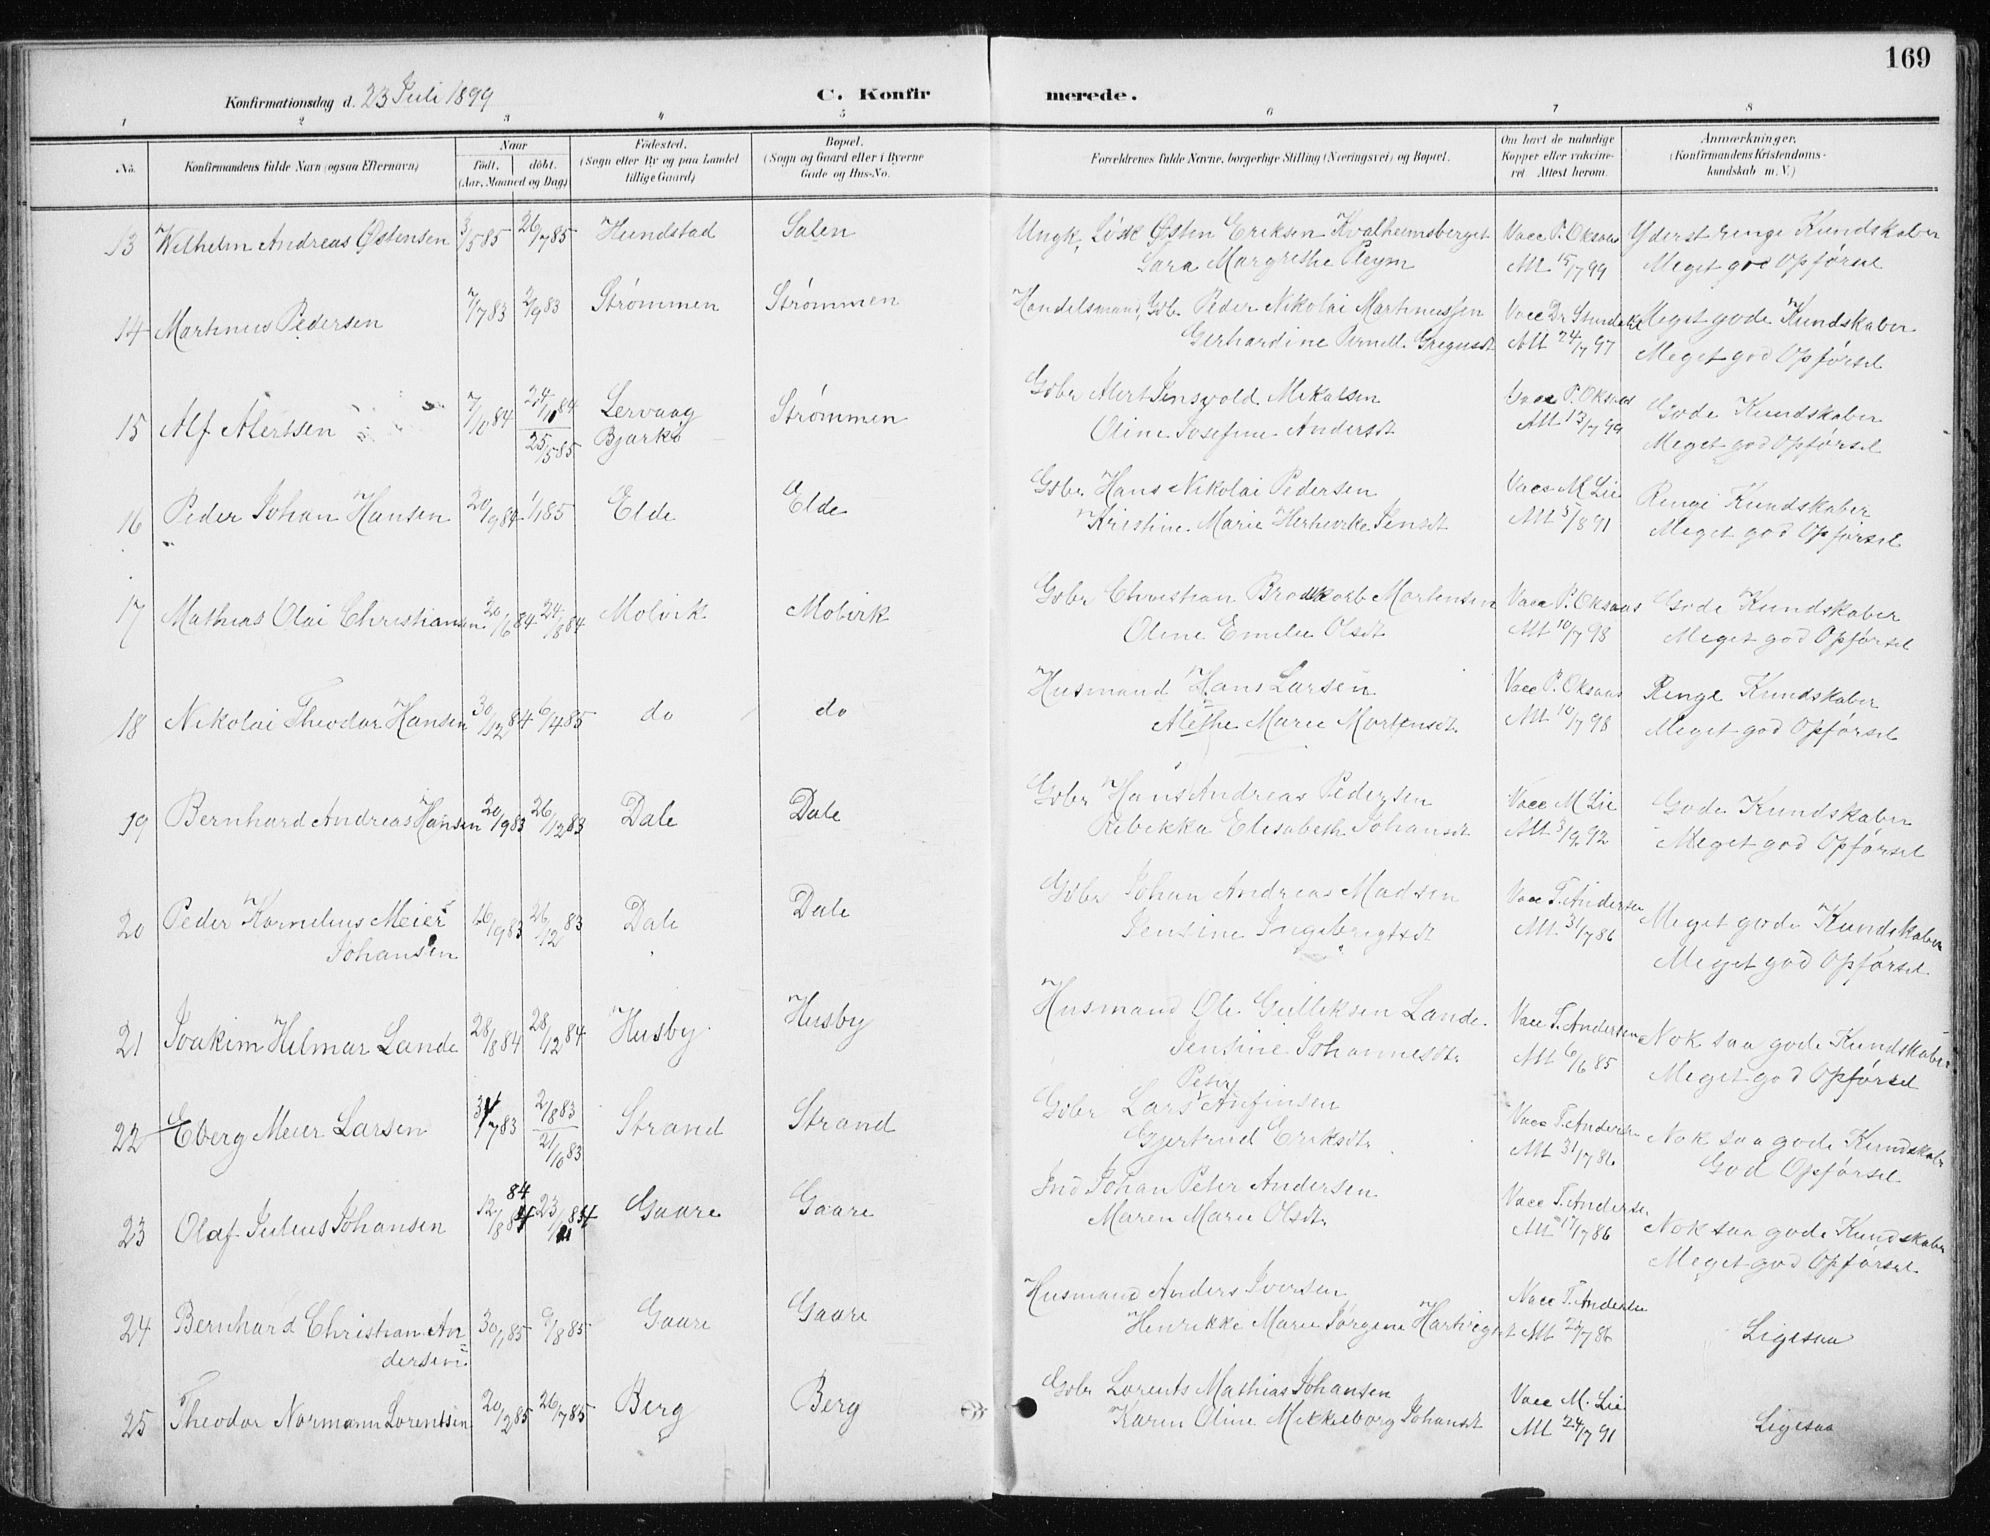 169
Konfirmationsdag d. 23 Juli 1899
C. Konfirmerede.
1 2 3 4 5 6 7 8
No.
Konfirmandens fulde Navn (ogsaa Efternavn)
Naar
født, døbt.
(Aar, Maaned og Dag)
Födested.
(Sogn eller By og paa Landet
tillige Gaard)
Bopæl.
(Sogn og Gaard eller i Byerne
Gade og Hus-No.
Forældrenes fulde Navne, borgerlige Stilling (Næringsvei) og Bopæl.
Om havt de naturlige
Kopper eller vakcine-
ret Attest herom.
Anmærkninger.
(Konfirmandens Kristendoms-
kundskab m. V.)
13 Wilhelm Andreas Østensen 3/5 85 26/7 85 Hundstad Salen Ungk, Lösk Østen Eriksen Kvalheimsberget Vacc P. Oksaas Yderst ringe Kundskaber
Sara Margrethe Pleym Att 15/7 99 Meget god Opførsel
14 Martinus Pedersen 7/7 83 2/9 83 Strømmen Strømmen Handelsmand, Gbr. Peder Nikolai Martinussen Vacc Dr Meget gode Kundskaber
Gerhardine Pernell. Gregusdt Att 24/7 97 Meget god Opførsel
15 Alf Alertsen 7/10 84 24/11 84 Lervaag Strømmen Gbr Alert Jensvold Mikalsen Vacc P. Oksaas Gode Kundskaber
25/5 85 Bjarkö Oline Josefine Andersdt Att 13/7 99 Meget god Opførsel
16 Peder Johan Hansen 20/9 84 1/1 85 Elde Elde Gbr Hans Nikolai Pedersen Vacc M Lie Ringe Kundskaber
Kristine Marie Jensdt Att 5/8 91 Meget god Opførsel
17 Mathias Olai Christiansen 20/6 84 24/8 84 Molvik Molvik Gbr Christian Brodtkorb Mortensen Vacc P. Oksaas Gode Kundskaber
Oline Emilie Olsdt Att 10/7 98 Meget god Opførsel
18 Nikolai Theodor Hansen 30/12 84 6/4 85 do do Husmand Hans Larsen Vacc P. Oksaas Ringe Kundskaber
Alethe Marie Mortensdt. Att 10/7 98 Meget god Opførsel
19 Bernhard Andreas Hansen 20/9 83 26/12 83 Dale Dale Gbr Hans Andreas Pedersen Vacc M Lie Gode Kundskaber
Rebekka Elisabeth Johansdt Att 3/9 92 Meget god Opførsel
20 Peder Kornelius Meier 16/9 83 26/12 83 Dale Dale Gbr Johan Andreas Madsen Vacc T. Andersen Meget gode Kundskaber
Johansen Jensine Ingebrigtsdt Att. 31/7 86 Meget god Opførsel.
21 Joakim Hilmar Lande 28/8 84 28/12 84 Husby Husby Husmand Ole Gulliksen Lande. Vacc T. Andersen Nok saa gode Kundskaber
Jensine Johannesdt. Att 6/6 85 Meget god Opførsel
Peter
22 Eberg Meier Larsen /7 83 2/8 83 Strand Strand Gbr Lars Anfinsen Vacc T. Andersen Nok saa gode Kundskab
21/10 83 Gjertrud Eriksdt. Att 31/7 86 God Opførsel
84
23 Olaf Julius Johansen 12/8 84 23/11 84 Gaare Gaare Ind Johan Peter Andersen Vacc T. Anderse Nok saa gode Kundskaber
Maren Marie Olsdt. Att 17/7 86 Meget god Opførsel
24 Bernhard Christian An 30/1 85 9/8 85 Gaare Gaare Husmand Anders Iversen Vacc T. Andersen
dersen. Henrikke Marie Jørgine Hartvigsdt Att 2/7 86 Ligesaa
25 Theodor Normann Lorentsen 20/2 85 26/7 85 Berg Berg Gbr Lorents Mathias Johansen Vacc M. Lie
Karen Oline Mikkelborg Johansdt Att 24/7 91 Ligesaa